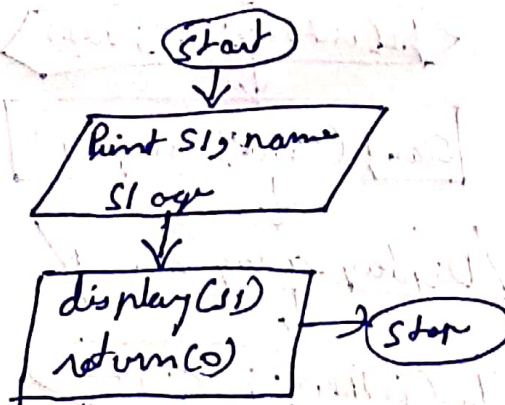 Start
Print S1, name
S1 age
display(S1)
return(0)
Stop